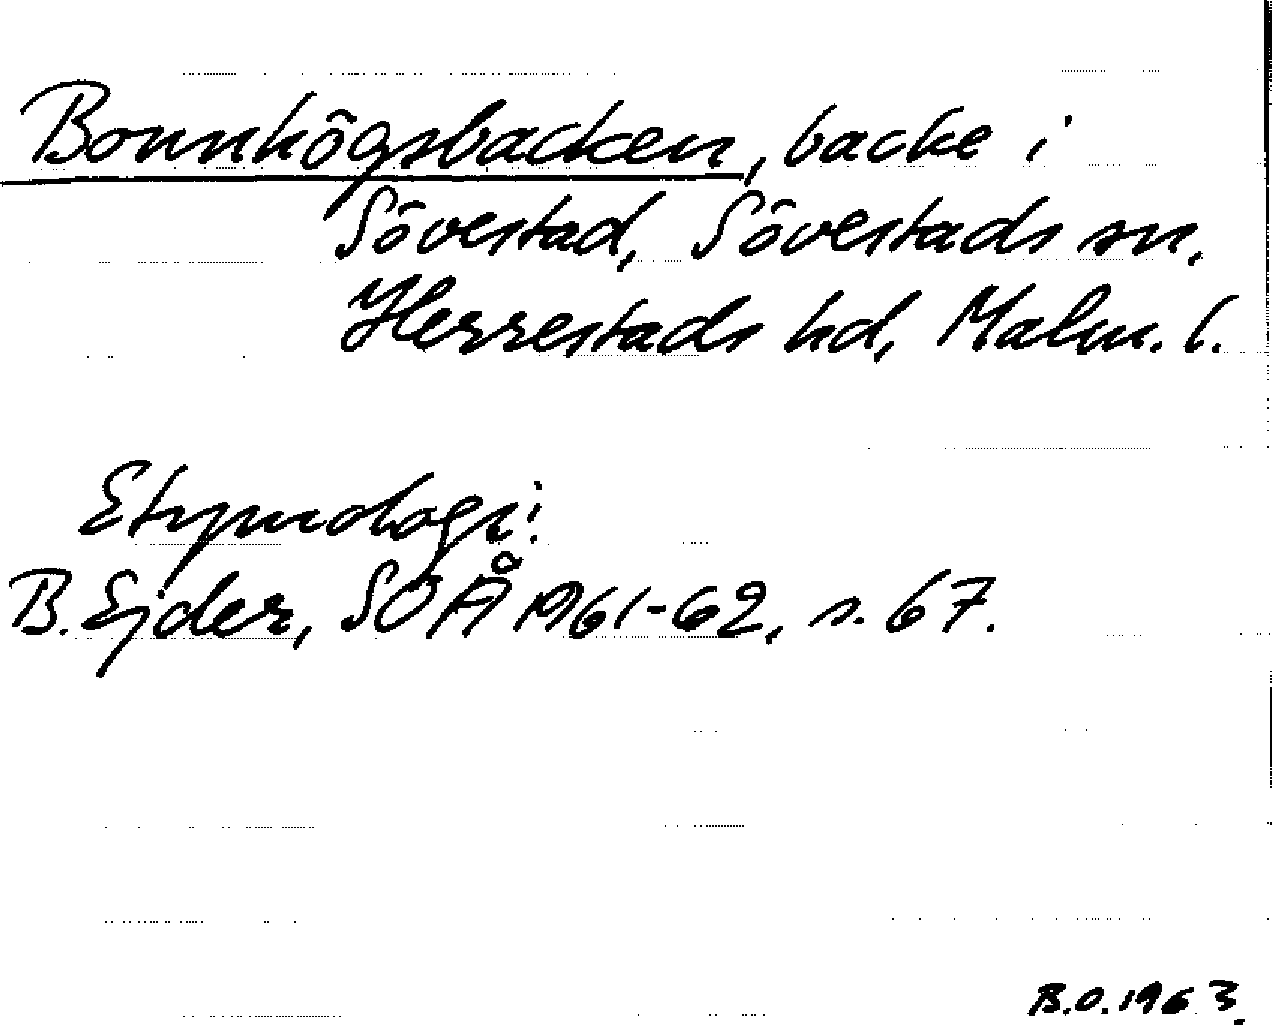 Bonnhögsbacken, backe i
Sövestad, Sövestads sn.
Herrestads hd, Malm. l.
Etymologi:
B. Ejder, SOÅ 1961-62, s. 67.
B.O. 1963.